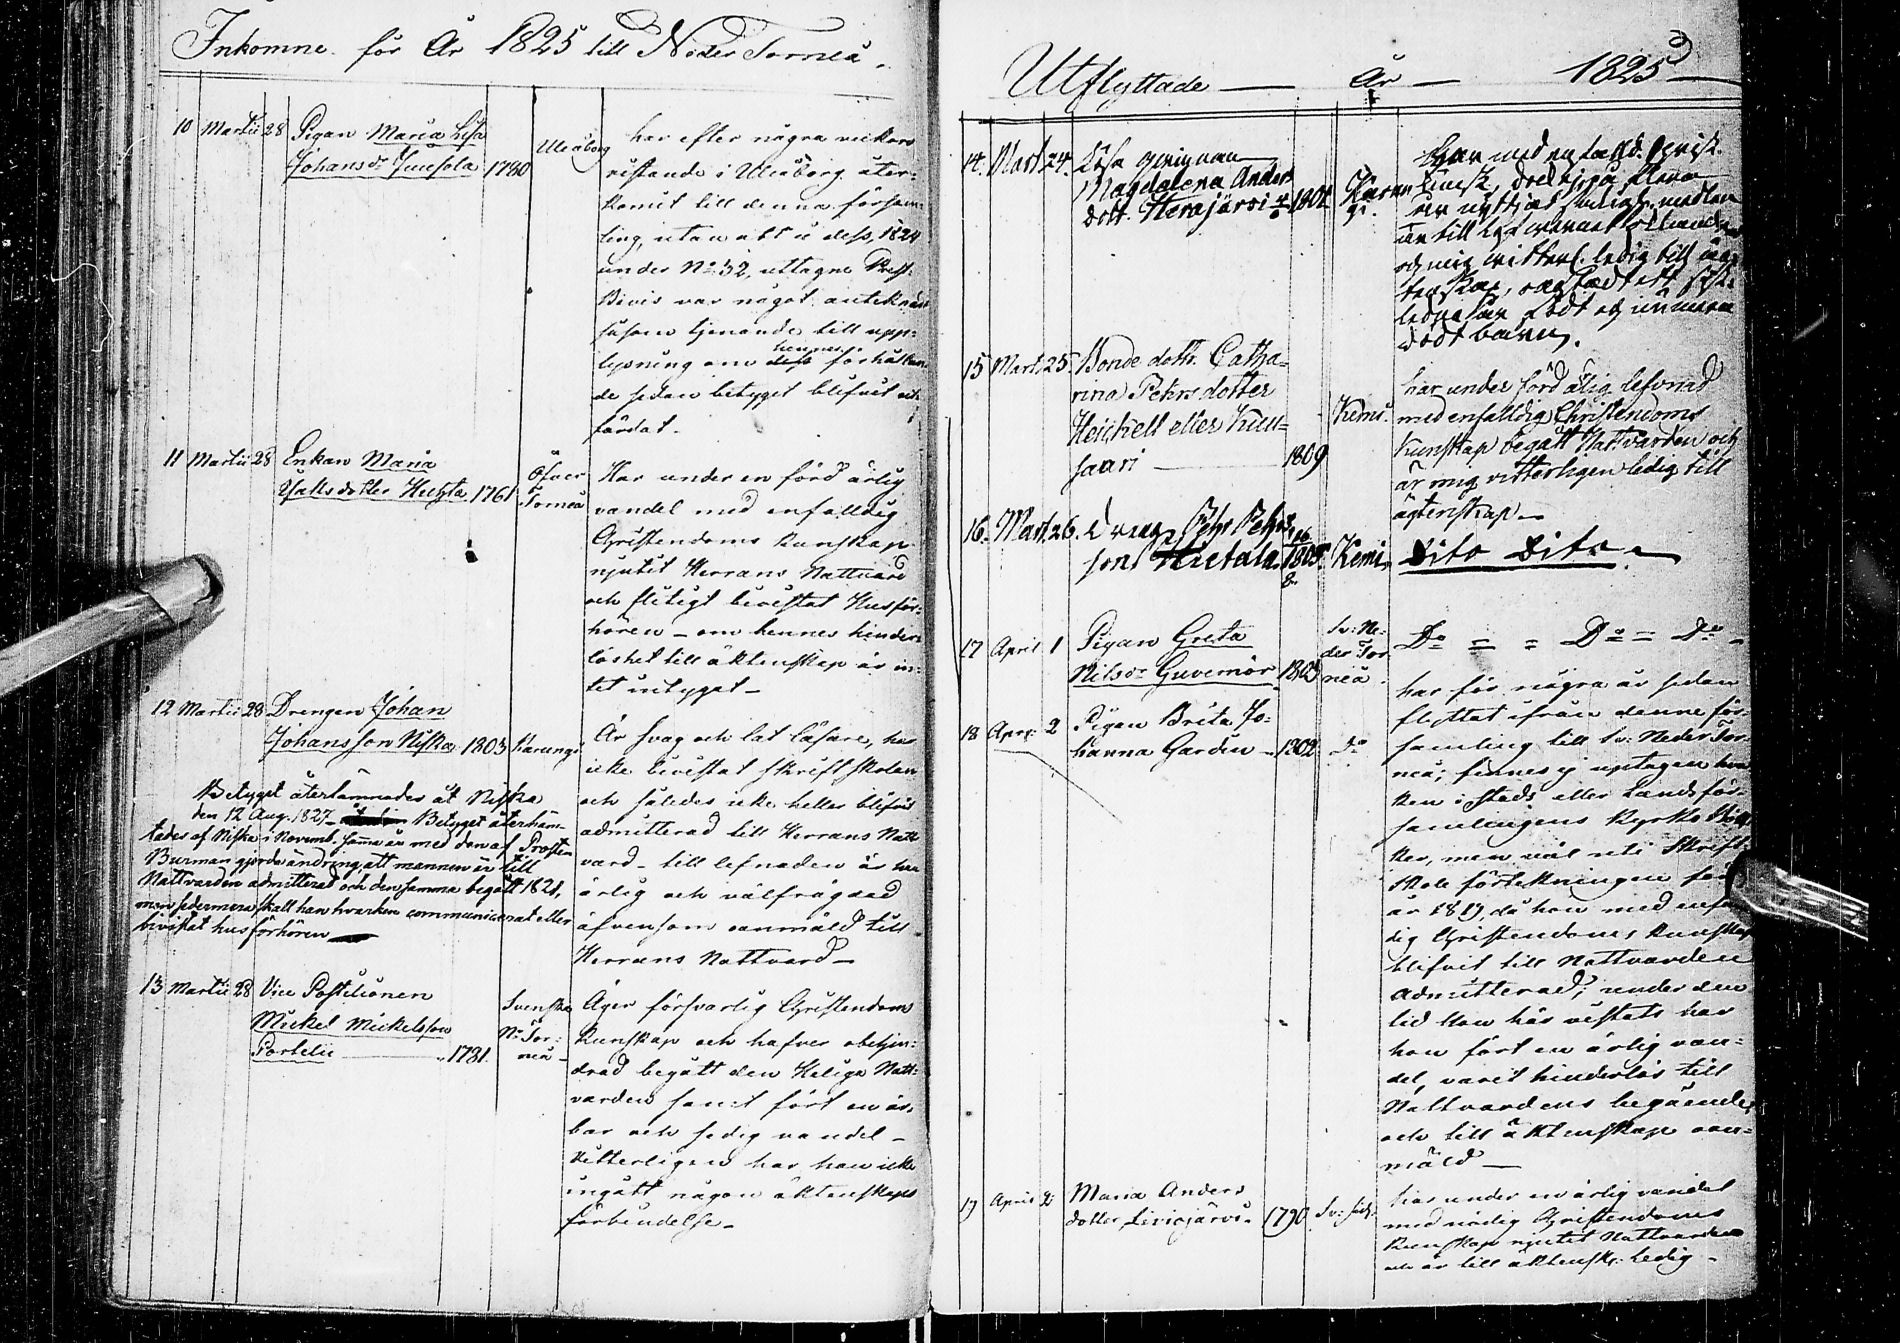 Inkomne för År 1825 till Neder Torneå.
10 Martii 28 Pigan Maria Lisa
Johansdr Juusola 1780 Uleåborg
har efter några veckors
vistande i Uleåborg åter-
komit till denna försam-
ling, utan att å dess, 1824
under No 32, uttagne Prest-
Bevis var något antecknadt
såsom tjenande till upp-
lysning om dess hennes förhållan-
de sedan betyget blifvit ut-
färdat.
11 Martii 28 Enkan Maria
Jakosdotter Hietza 1761 Öfver
Torneå
Har under en förd ärlig
vandel med enfaldig
Christendoms kunskap
njutit Herrans Nattvard
och flitigt bevistat Husför-
hören – om hennes hinders
löshet till äktenskap är in-
tet intygat –
12 Martii 28 Drengen Johan
Johansson Niska 1803 Karungi
Är svag och lat läsare, har
icke bevistat skriftskolan
och således icke heller blifvit
admitterad till Herrans Natt
vard – till lefnaden är han
ärlig och välfrägdad
äfvensom oanmäld till
Herrans Nattvard –
Betyget återlämnades åt Niska
den 12 Aug. 1827 – Betyget återhäm-
tades af Niska i Novemb. samma år med den af Prosten
Burman gjorda ändring, att mannen är till
Nattvarden admitterad och densamma begått 1821,
men sedermera skall han hvarken communicerat eller
bivistat husförhören
13 Martii 28 Vice Postilionen
Mickel Mickelsson
Portelii 1781. Svenska
N. Tor-
neå –
Äger försvarlig Christendoms
kunskap och hafver obehin-
drad begått den Heliga Natt-
varden samt fört en är-
bar och sedig vandel –
Vitterligen har han icke
ingått någon äktenskaps
förbindelse –
Utflyttade — År — 1825
14. Mart. 24.
Magdalena Anders
dott. Herajärvi 1801 Karun
gi.
född och numera
dödt barn.
15 Mart. 25. Bonde dottr. Catha-
rina Pehrsdotter
Heickell eller Kuu-
saari — 1809 Kemi.
har under förd ärlig lefnad
med enfaldig Christendoms
kunskap begått Nattvarden och
är mig vitterligen ledig till
ägtenskap –
16. Mart. 26. Dreng Pehr Pehrs
son Hietala 1805 Kemi. Dito Dito.
17 April 1 Pigan Greta
Nilsdr Guvernör 1803 Sv: Ne-
der Tor
neå. Do = = Do = Do –
18 April 2 Pigan Brita Jo-
hanna Gardin – 1802 do
har för några år sedan
flyttat ifrån denne för-
samling till Sv: Neder Tor-
neå; finnes ej uptagen hvar
ken i Stads eller Landsför-
samlingens Kyrko Böc
ker, men väl uti Skrift-
skole förtekningen för
år 1819, då hon med enfal
dig Christendoms kunskap
blifvit till Nattvarden
admitterad; under den
tid hon här vistats har
hon fört en ärlig van-
del, varit hinderlös till
Nattvardens begående,
och till äktenskap oan-
mäld –
19 April 2 Maria Anders
dotter Liviojärvi – 1790
har under en ärlig vandel
med nödig Christendoms
kunskap njutit Nattvarden
och är till äktensk: ledig –